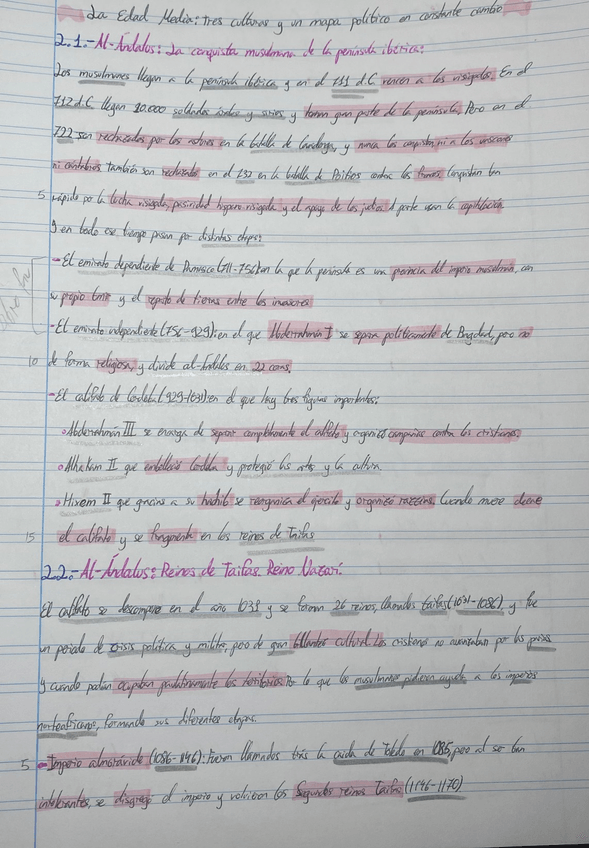 La Edad Media: tres culturas y un mapa político en constante cambio
2.1.-Al-Ándalus: La conquista musulmana de la península ibérica:
Los musulmanes llegan a la península ibérica y en el 711 d.C vencen a los visigodos. En el
712 d.C llegan 20.000 soldados árabes y sirios y toman gran parte de la península. Pero en el
722 son rechazados por los astures en la batalla de Covadonga, y nunca los conquistan, ni a los vascones
ni cántabros también son rechazados en el 732 en la batalla de Poitiers contra los francos. Conquistan tan
5 rápido por la lucha visigoda, pasividad hispano visigoda y el apoyo de los judíos. A parte usan la capitulación
y en todo ese tiempo pasan por distintas etapas:
-El emirato dependiente de Damasco (711-756) en la que la península es una provincia del imperio musulmán, con
su propio Emir y el reparto de tierras entre los invasores
-El emirato independiente (756-929): en el que Abderrahmán I se separa políticamente de Bagdad, pero no
10 de forma religiosa, y divide al-Ándalus en 22 coras.
-El califato de Córdoba (929-1031): en el que hay tres figuras importantes:
Abderrahmán III se encarga de separar completamente el califato y organizó campañas contra los cristianos.
Alhakam II que embelleció Córdoba y protegió las artes y la cultura.
Hixem II que gracias a su hachib se reorganiza el ejercito y organizó razzias. Cuando muere decae
15 el califato y se fragmenta en los reinos de Taifas
2.2.-Al-Ándalus: Reinos de Taifas. Reino Nazarí.
El califato se descompone en el año 1031 y se forman 26 reinos, llamados taifas (1031-1086), y fue
un periodo de crisis política y militar, pero de gran brillantez cultural. Los cristianos no avanzaban por las parias
y cuando podían ocupaban paulatinamente los territorios. Por lo que los musulmanes pidieron ayuda a los imperios
norteafricanos, formando sus diferentes etapas.
5 -Imperio almorávide (1086-1146): Fueron llamados trás la caída de Toledo en 1085, pero al ser tan
intolerantes, se disgregó el imperio y volvieron los Segundos reinos Taifas (1146-1170)